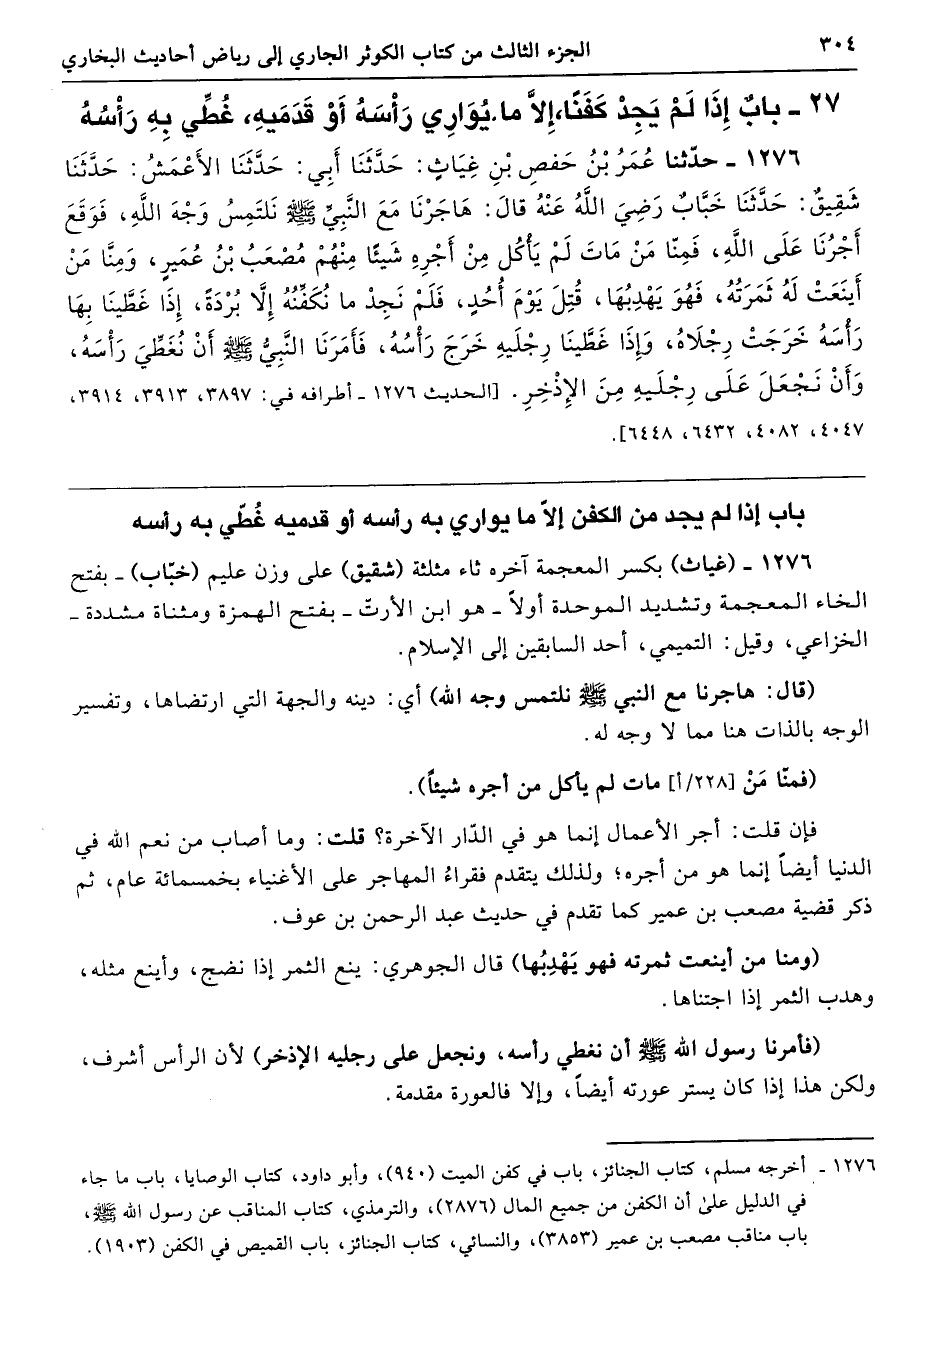 ٣٠٤
الجزء الثالث من كتاب الكوثر الجاري إلى رياض أحاديث البخاري
٢٧ ـ بابٌ إِذَا لَمْ يَجِدْ كَفَنًا، إِلاَّ ما يُوَارِي رَأْسَهُ أَوْ قَدَمَيهِ، غُطِّي بِهِ رَأْسُهُ
١٢٧٦ ـ حدّثنا عُمَرُ بْنُ حَفصِ بْنِ غِيَاثٍ: حَدَّثَنَا أَبِي: حَدَّثَنَا الأَعْمَشُ: حَدَّثَنَا
شَقِيقٌ: حَدَّثَنَا خَبَّابٌ رَضِيَ اللَّهُ عَنْهُ قالَ: هَاجَرْنَا مَعَ النَّبِيِّ ﷺ نَلتَمِسُ وَجْهَ اللَّهِ، فَوَقَعَ
أَجْرُنَا عَلَى اللَّهِ، فَمِنّا مَنْ مَاتَ لَمْ يَأْكُل مِنْ أَجْرِهِ شَيئًا مِنْهُمْ مُصْعَبُ بْنُ عُمَيرٍ، وَمِنَّا مَنْ
أَينَعَتْ لَهُ ثَمَرَتُهُ، فَهُوَ يَهْدِبُهَا، قُتِلَ يَوْمَ أُحُدٍ، فَلَمْ نَجِدْ ما نُكَفِّنُهُ إِلَّا بُرْدَةً، إِذَا غَطَّينَا بِهَا
رَأْسَهُ خَرَجَتْ رِجْلَاهُ، وَإِذَا غَطَّينَا رِجْلَيهِ خَرَجَ رَأْسُهُ، فَأَمَرَنَا النَّبِيُّ ﷺ أَنْ نُغَطِّيَ رَأْسَهُ،
وَأَنْ نَجْعَلَ عَلَى رِجْلَيهِ مِنَ الإِذْخِرِ. [الحديث ١٢٧٦ ـ أطرافه في: ٣٨٩٧، ٣٩١٣، ٣٩١٤،
٤٠٤٧، ٤٠٨٢، ٦٤٣٢، ٦٤٤٨].
باب إذا لم يجد من الكفن إلاّ ما يواري به رأسه أو قدميه غُطّي به رأسه
١٢٧٦ ـ (غياث) بكسر المعجمة آخره ثاء مثلثة (شقيق) على وزن عليم (خبّاب) ـ بفتح
الخاء المعجمة وتشديد الموحدة أولاً ـ هو ابن الأرتّ ـ بفتح الهمزة ومثناة مشددة ـ
الخزاعي، وقيل: التميمي، أحد السابقين إلى الإسلام.
(قال: هاجرنا مع النبي ﷺ نلتمس وجه الله) أي: دينه والجهة التي ارتضاها، وتفسير
الوجه بالذات هنا مما لا وجه له.
(فمنّا مَنْ [٢٢٨/أ] مات لم يأكل من أجره شيئاً).
فإن قلت: أجر الأعمال إنما هو في الدّار الآخرة؟ قلت: وما أصاب من نعم الله في
الدنيا أيضاً إنما هو من أجره؛ ولذلك يتقدم فقراءُ المهاجر على الأغنياء بخمسمائة عام، ثم
ذكر قضية مصعب بن عمير كما تقدم في حديث عبد الرحمن بن عوف.
(ومنا من أينعت ثمرته فهو يَهْدِبُها) قال الجوهري: ينع الثمر إذا نضج، وأينع مثله،
وهدب الثمر إذا اجتناها.
(فأمرنا رسول الله ﷺ أن نغطي رأسه، ونجعل على رجليه الإذخر) لأن الرأس أشرف،
ولكن هذا إذا كان يستر عورته أيضاً، وإلا فالعورة مقدمة.
١٢٧٦ ـ أخرجه مسلم، كتاب الجنائز، باب في كفن الميت (٩٤٠)، وأبو داود، كتاب الوصايا، باب ما جاء
في الدليل على أن الكفن من جميع المال (٢٨٧٦)، والترمذي، كتاب المناقب عن رسول الله ﷺ،
باب مناقب مصعب بن عمير (٣٨٥٣)، والنسائي، كتاب الجنائز، باب القميص في الكفن (١٩٠٣).